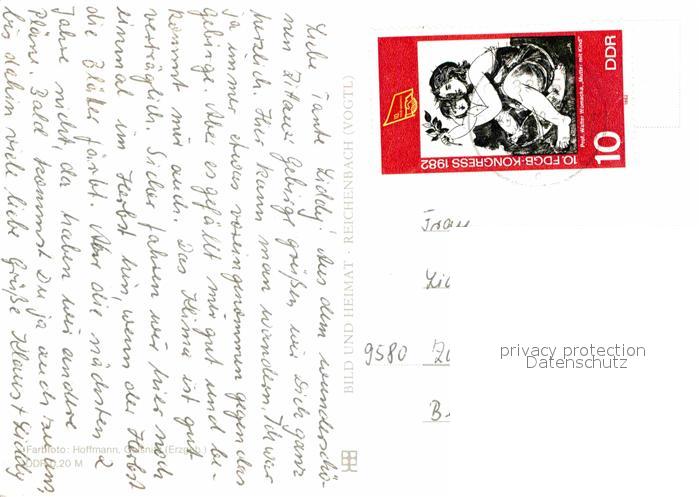 Liebe Tante Liddy! Aus dem wunderschö-
nen Zittauer Gebirge grüßen wir Dich ganz
herzlich. Hier kann man wandern. Ich war
ja immer etwas voreingenommen gegen das
Gebirge. Aber es gefällt mir gut und be-
kommt mir auch. Das Klima ist gut
verträglich. Sicher fahren wir hier noch
einmal im Herbst hin, wenn der Herbst
die Blätter färbt. Aber die nächsten 2
Jahre nicht, da haben wir andere
Pläne. Bald kommst Du ja auch zu uns,
bis dahin viele liebe Grüße Klaus + Liddy
Farbfoto: Hoffmann, (Erzgeb.)
DDR 0,20 M
BILD UND HEIMAT · REICHENBACH (VOGTL)
10. FDGB-KONGRESS 1982
Prof. Walter Womacka, „Mutter mit Kind“
DDR
10
1982
Frau
9580
B.
privacy protection
Datenschutz